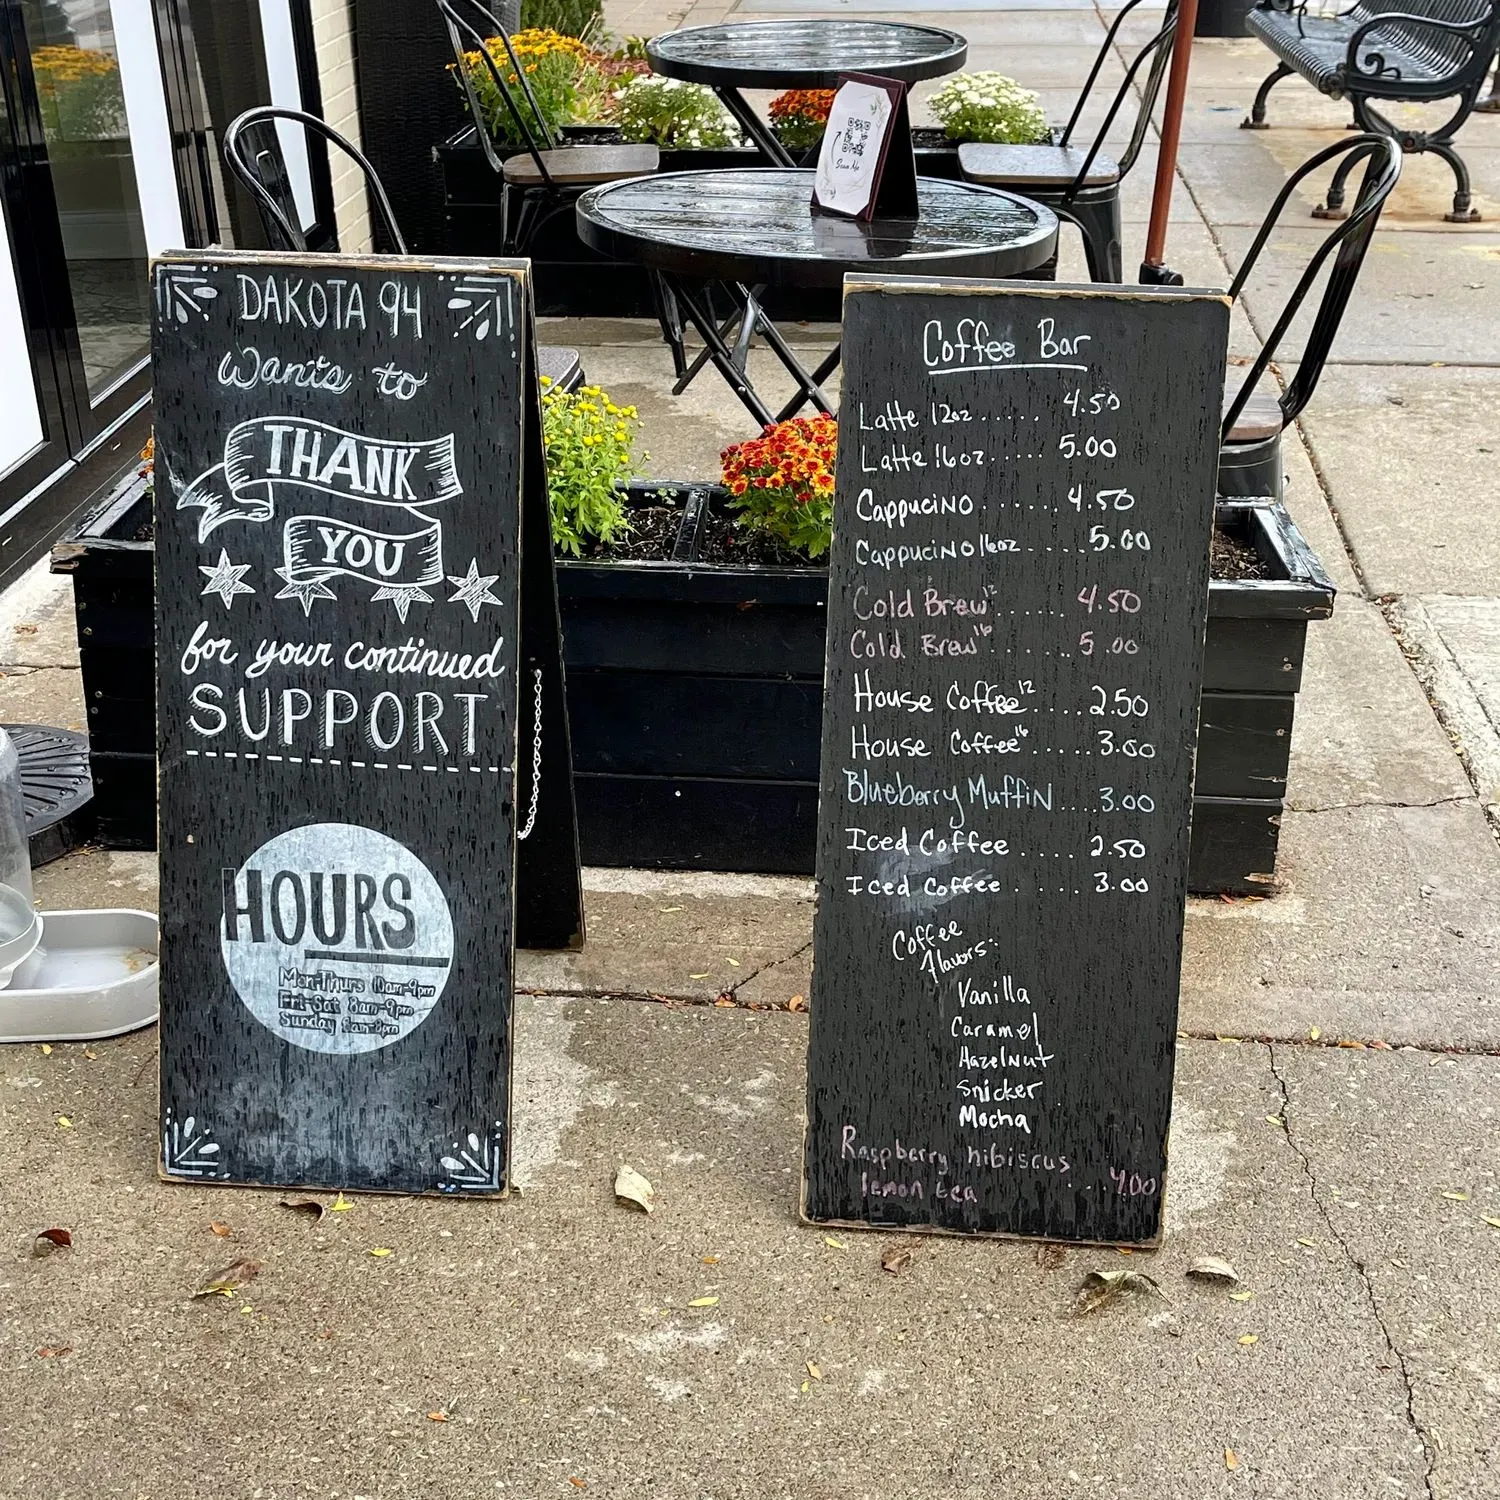 Scan Me
DAKOTA 94
Wants to
THANK
YOU
for your continued
SUPPORT
HOURS
Mon-Thurs 10am-9pm
Fri-Sat 8am-9pm
Sunday 8am-8pm
Coffee Bar
Latte 12oz ..... 4.50
Latte 16oz ..... 5.00
Cappucino ...... 4.50
Cappucino 16oz .... 5.00
Cold Brew 12 ...... 4.50
Cold Brew 16 ...... 5.00
House Coffee 12 .... 2.50
House Coffee 16 ..... 3.00
Blueberry Muffin ... 3.00
Iced Coffee .... 2.50
Iced Coffee .... 3.00
Coffee
flavors:
Vanilla
Caramel
Hazelnut
Snicker
Mocha
Raspberry hibiscus
lemon tea .. 4.00